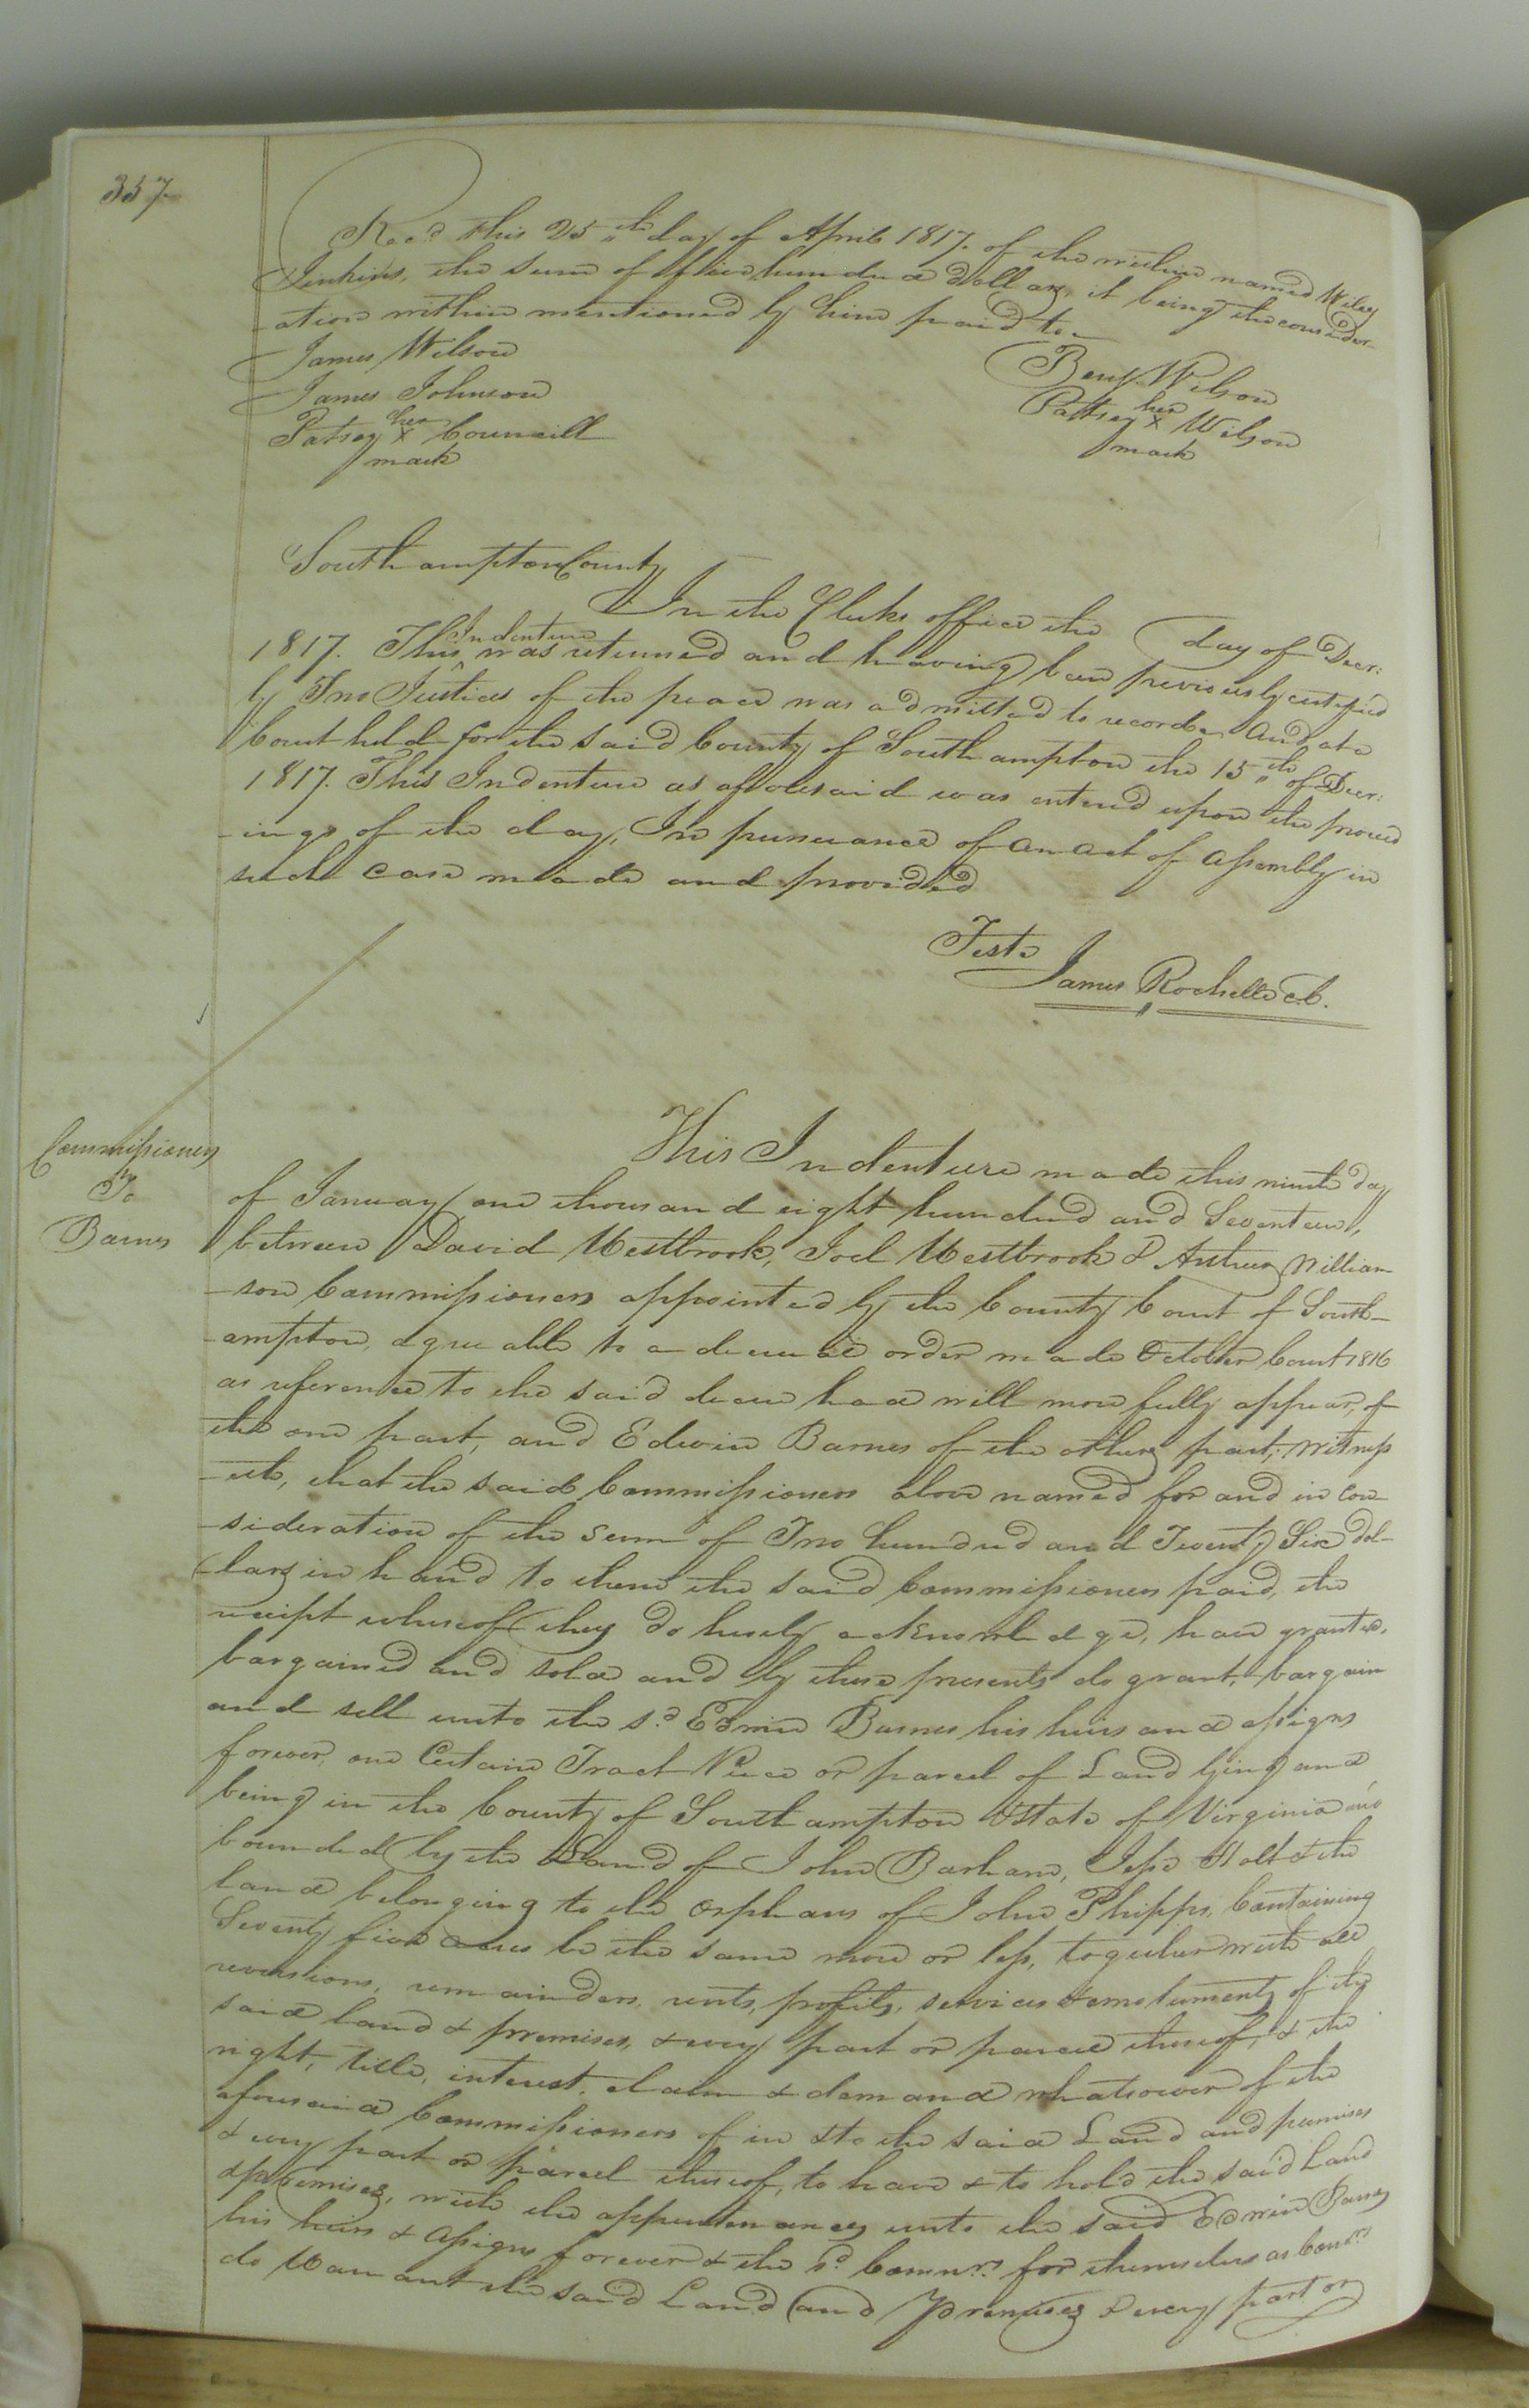 357
Rec.d this 25,,th day of April 1817. of the within named Wiley
Jenkins, the sum of five hundred dollars, it being the consider-
-ation within mentioned by him paid to
James Wilson
Benj. Wilson
James Johnson
Patsey her x mark Wilson
Patsey her x mark Councill
Southampton County
In the Clerks office the day of Decr:
1817. This Indenture was returned and having been previously certified
by Two Justices of the peace was admitted to record And at a
Court held for the said County of Southampton the 15,,th of Decr:
1817. This Indenture as aforesaid was entered upon the proceed
-ings of the day, In pursuance of an act of Assembly in
such case made and provided
Teste
James Rochelle C.C.
Commissioners
To
Barnes
This Indenture made this ninth day
of January one thousand eight hundred and Seventeen,
between David Westbrook, Joel Westbrook & Arthur William
-son Commissioners appointed by the County Court of South-
-ampton, agreeable to a decreeal order made October Court 1816
as reference to the said decree had will more fully appear, of
the one part, and Edwin Barnes of the other part; Witness
-eth, that the said Commissioners above named for and in con-
-sideration of the sum of Two hundred and Twenty Six dol-
-lars in hand to them the said Commissioners paid, the
receipt whereof they do hereby acknowledge, have granted,
bargained and sold and by these presents do grant, bargain
and sell unto the s.d Edwin Barnes his heirs and assigns
forever, one Certain Tract Piece or parcel of Land lying and
being in the County of Southampton & State of Virginia and
bounded by the Land of John Barham, Jesse Holt & the
land belonging to the orphans of John Phipps, Containing
Seventy five acres be the same more or less, together with all
reversions, remainders, rents, profits, services & emoluments of the
said land & premises, & every part or parcel thereof, & the
right, title, interest, claim & demand whatsoever of the
aforesaid Commissioners of in & to the said Land and premises
& every part or parcel thereof, to have & to hold the said Land
& premises, with the appurtenances unto the said Edwin Barnes
his heirs & assigns forever & the s.d Commrs for themselves as Commrs
do Warrant the said Land and Premises & every part or